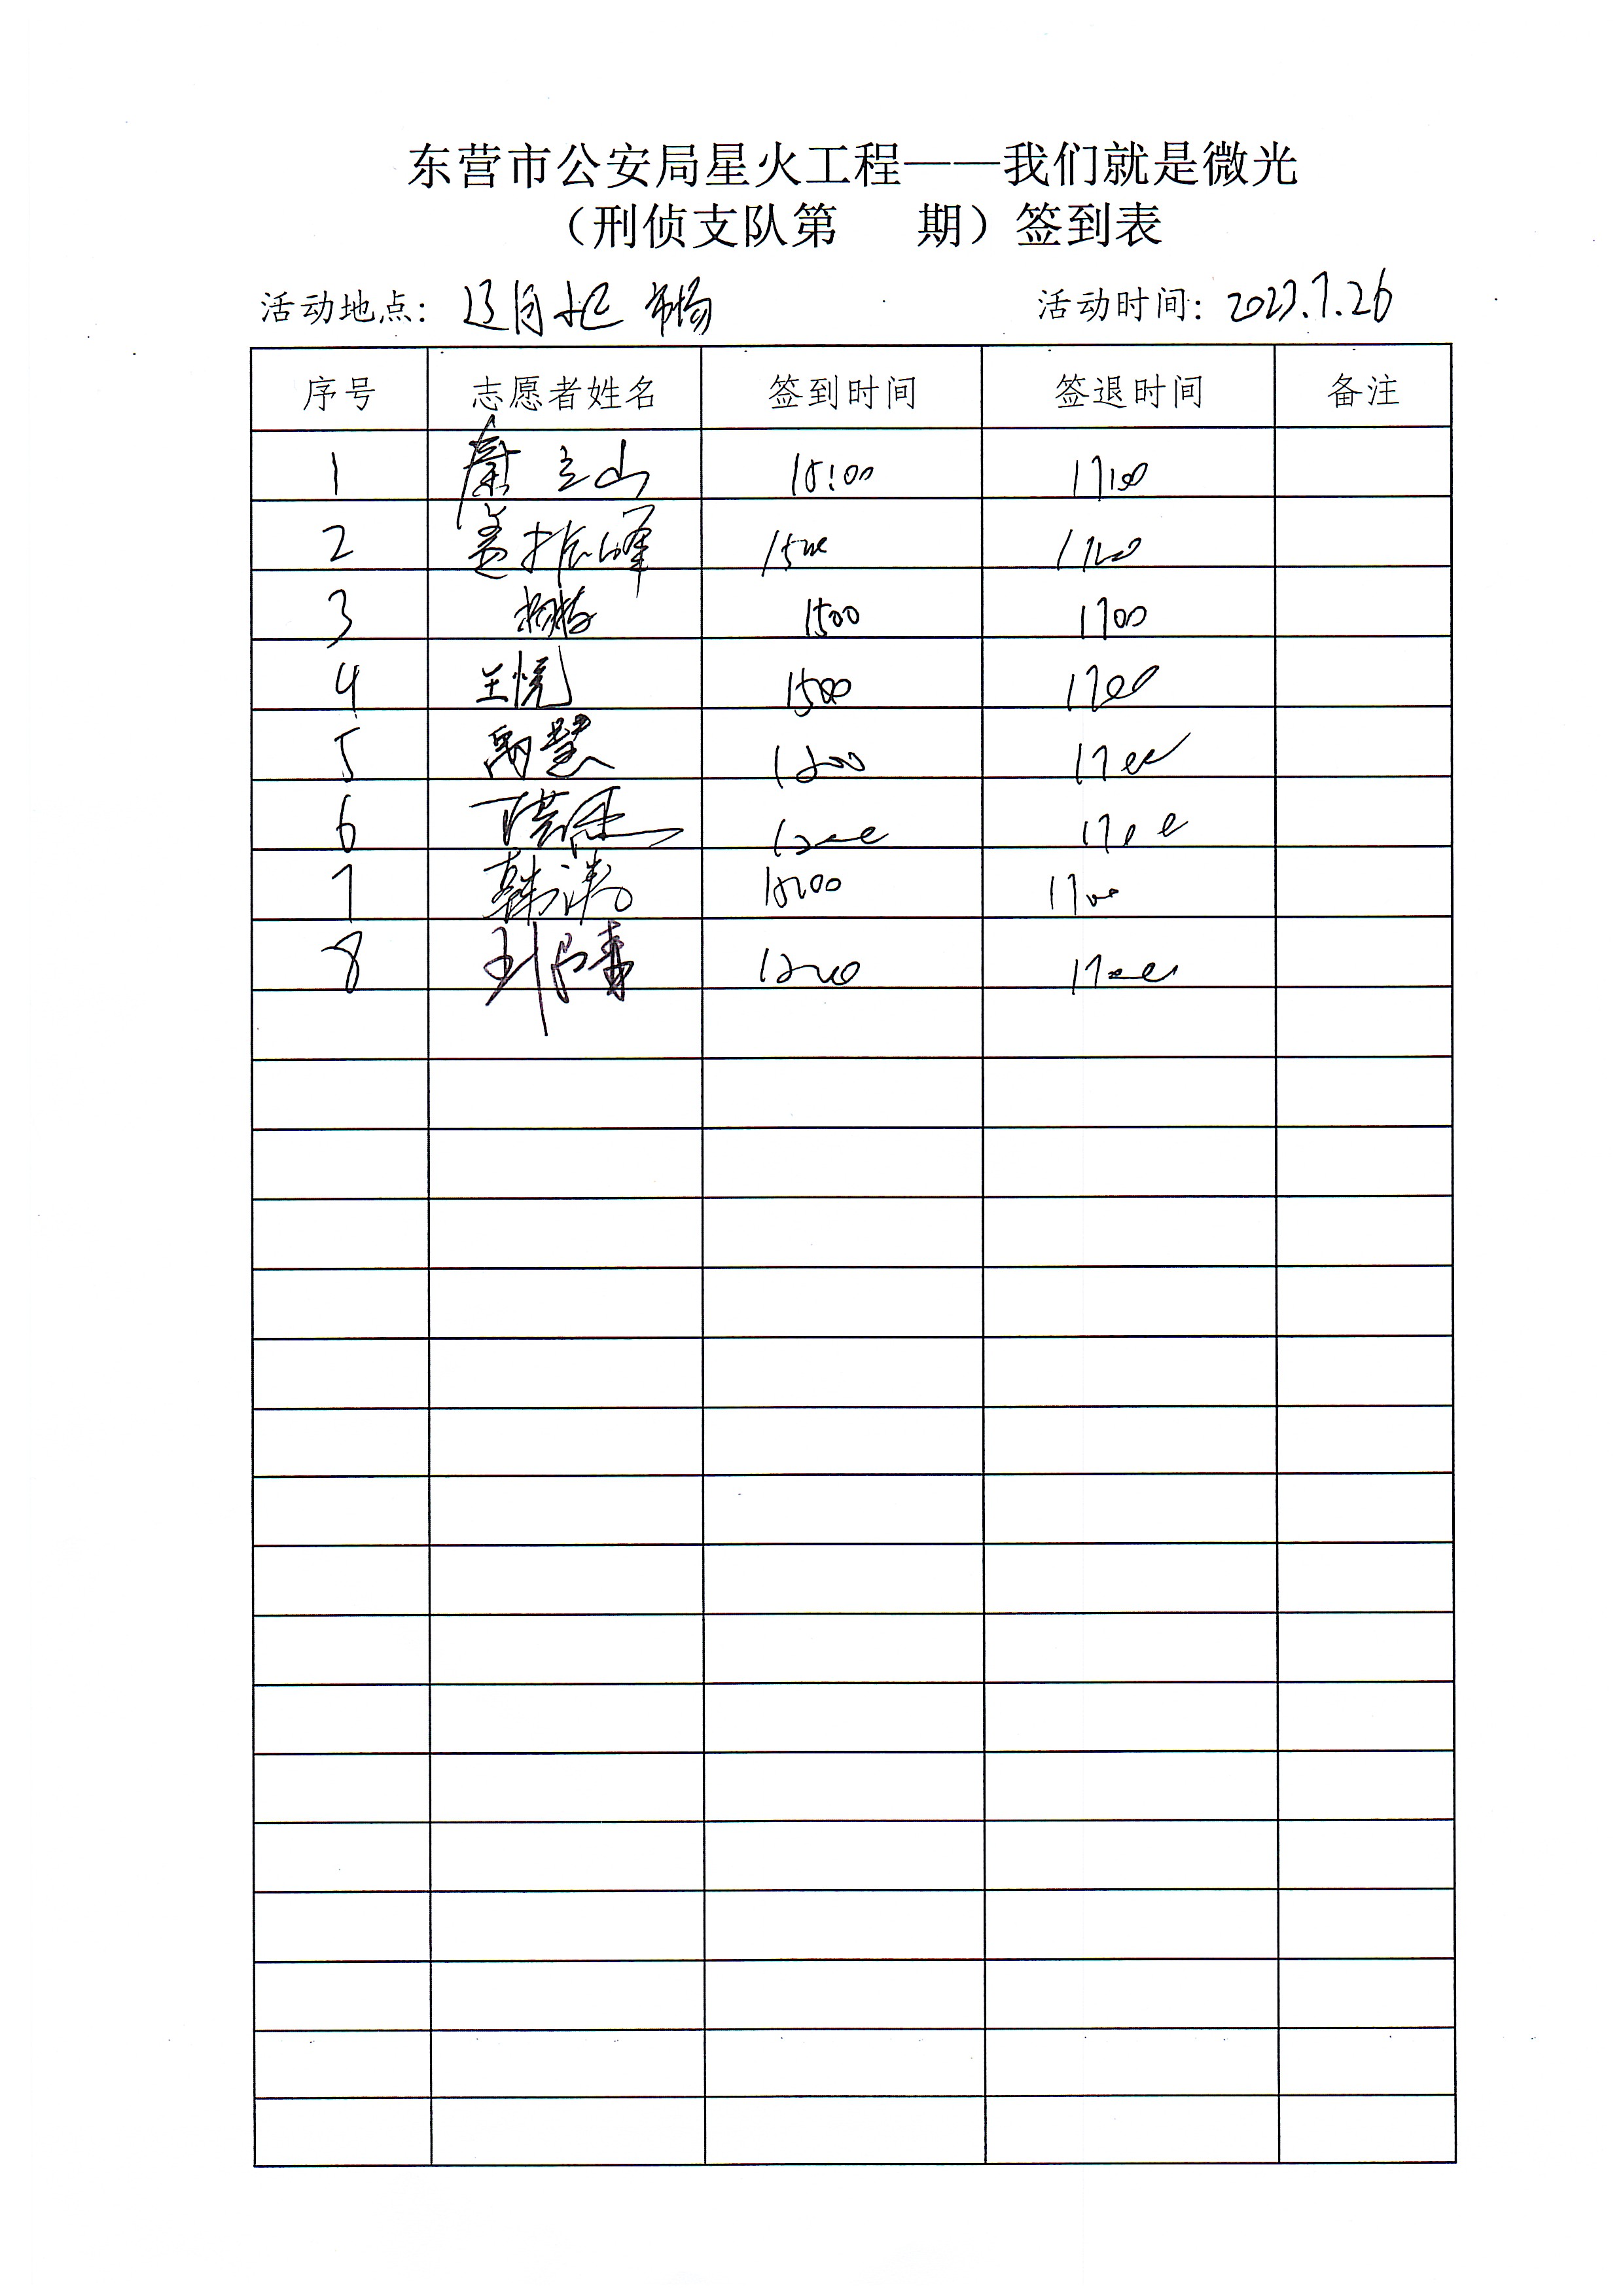 东营市公安局星火工程——我们就是微光
（刑侦支队第　　期）签到表
活动地点： 市场　活动时间：2023.7.26
序号 志愿者姓名 签到时间 签退时间 备注
1 立山 15:00 17:00
2 盖振峰 1500 1700
3 1500 1700
4 王悦 1500 1700
5 禹慧 1500 1700
6 1500 1700
7 韩涛 15:00 1700
8 刘 1500 1700